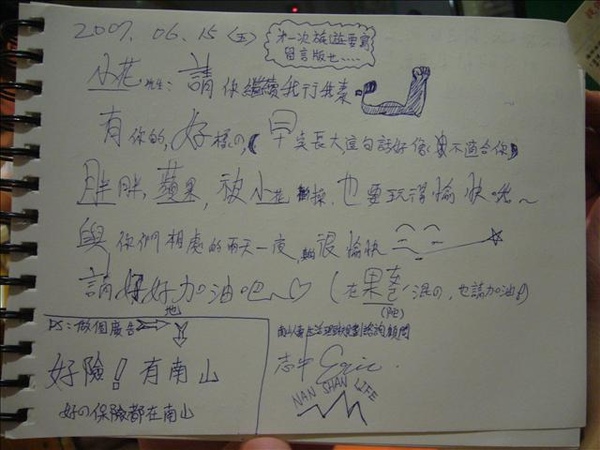 2007. 06. 15 (五)
第一次旅遊要寫
留言版也.....
小花先生: 請你繼續我行我素
有你的, 好樣の, (早安長大, 這句話好像不適合你)
胖胖, 蘋果, 被小花採, 也要玩得愉快唷~
與你們相處的兩天一夜, 很愉快
請好好加油吧~♡ (在果蔬混の, 也請加油)
地
(PE)
PS: 做個廣告
好險! 有南山
好の保險都在南山
顧問
志中 Eric.
NAN SHAN LIFE